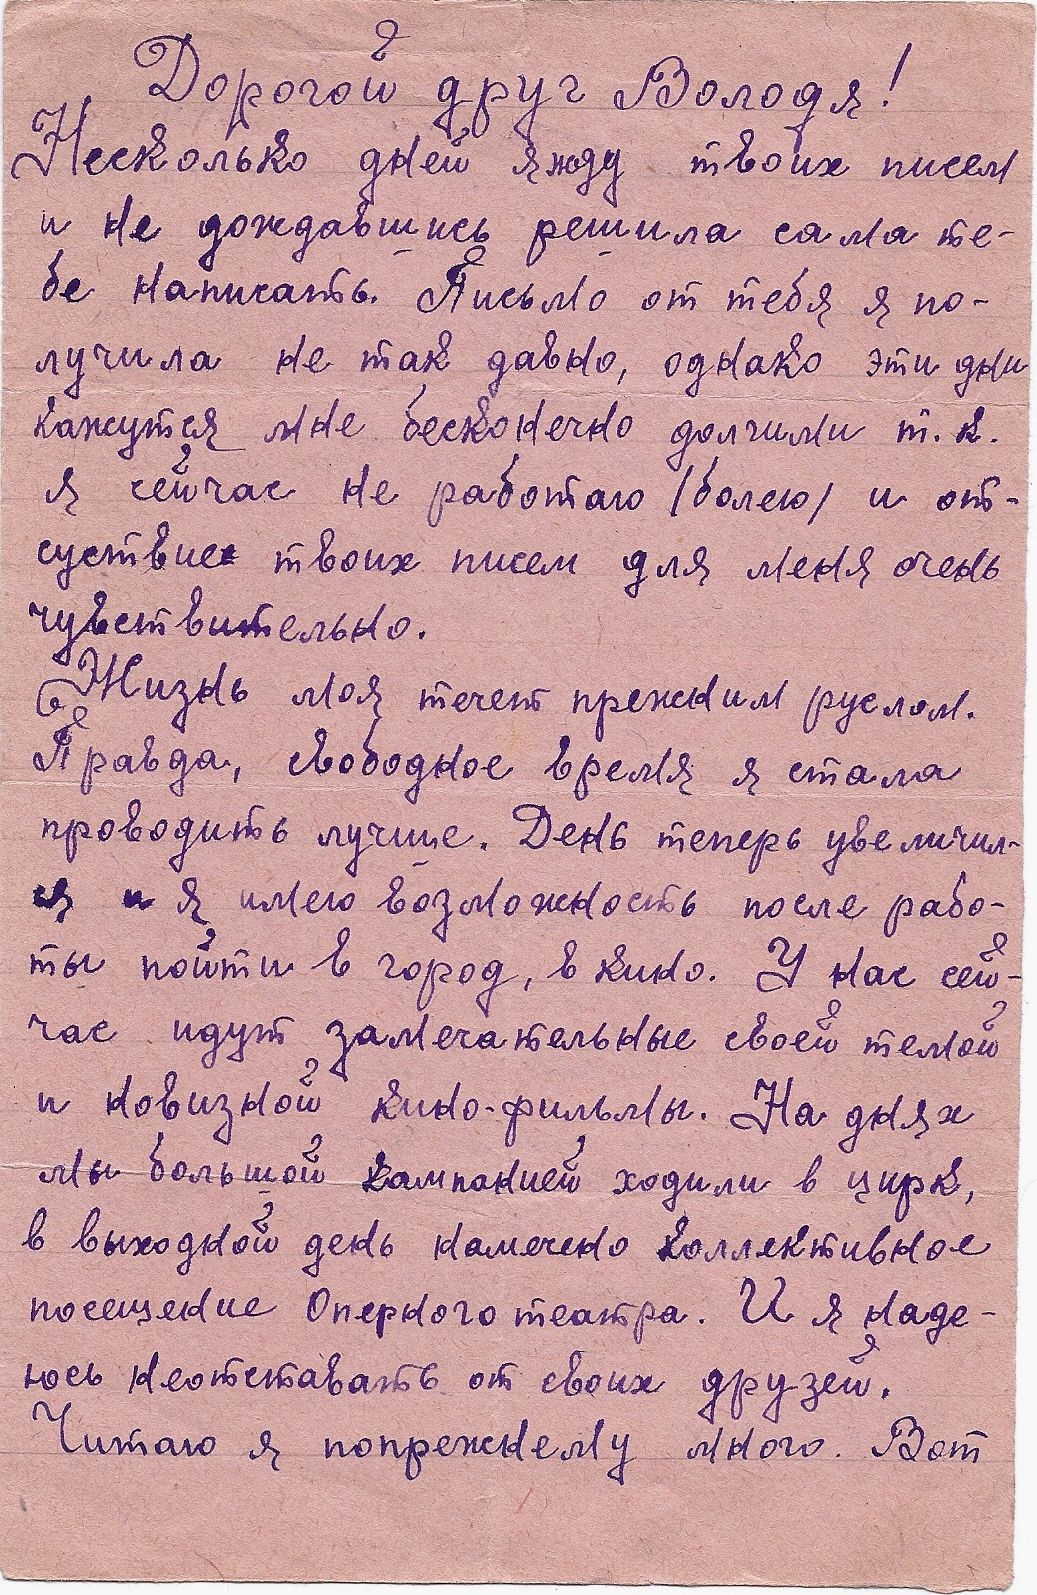 Дорогой друг Володя!
Несколько дней я жду твоих писем
и не дождавшись решила сама те-
бе написать. Письмо от тебя я по-
лучила не так давно, однако эти дни
кажутся мне бесконечно долгими т.к.
я сейчас не работаю /болею/ и от-
суствие твоих писем для меня очень
чувствительно.
Жизнь моя течет прежним руслом.
Правда, свободное время я стала
проводить лучше. День теперь увеличил-
ся и я имею возможность после рабо-
ты пойти в город, в кино. У нас сей-
час идут замечательные своей темой
и новизной кино-фильмы. На днях
мы большой кампанией ходили в цирк,
в выходной день намечено коллективное
посещение Оперного театра. И я наде-
юсь неотставать от своих друзей.
Читаю я попрежнему много. Вот